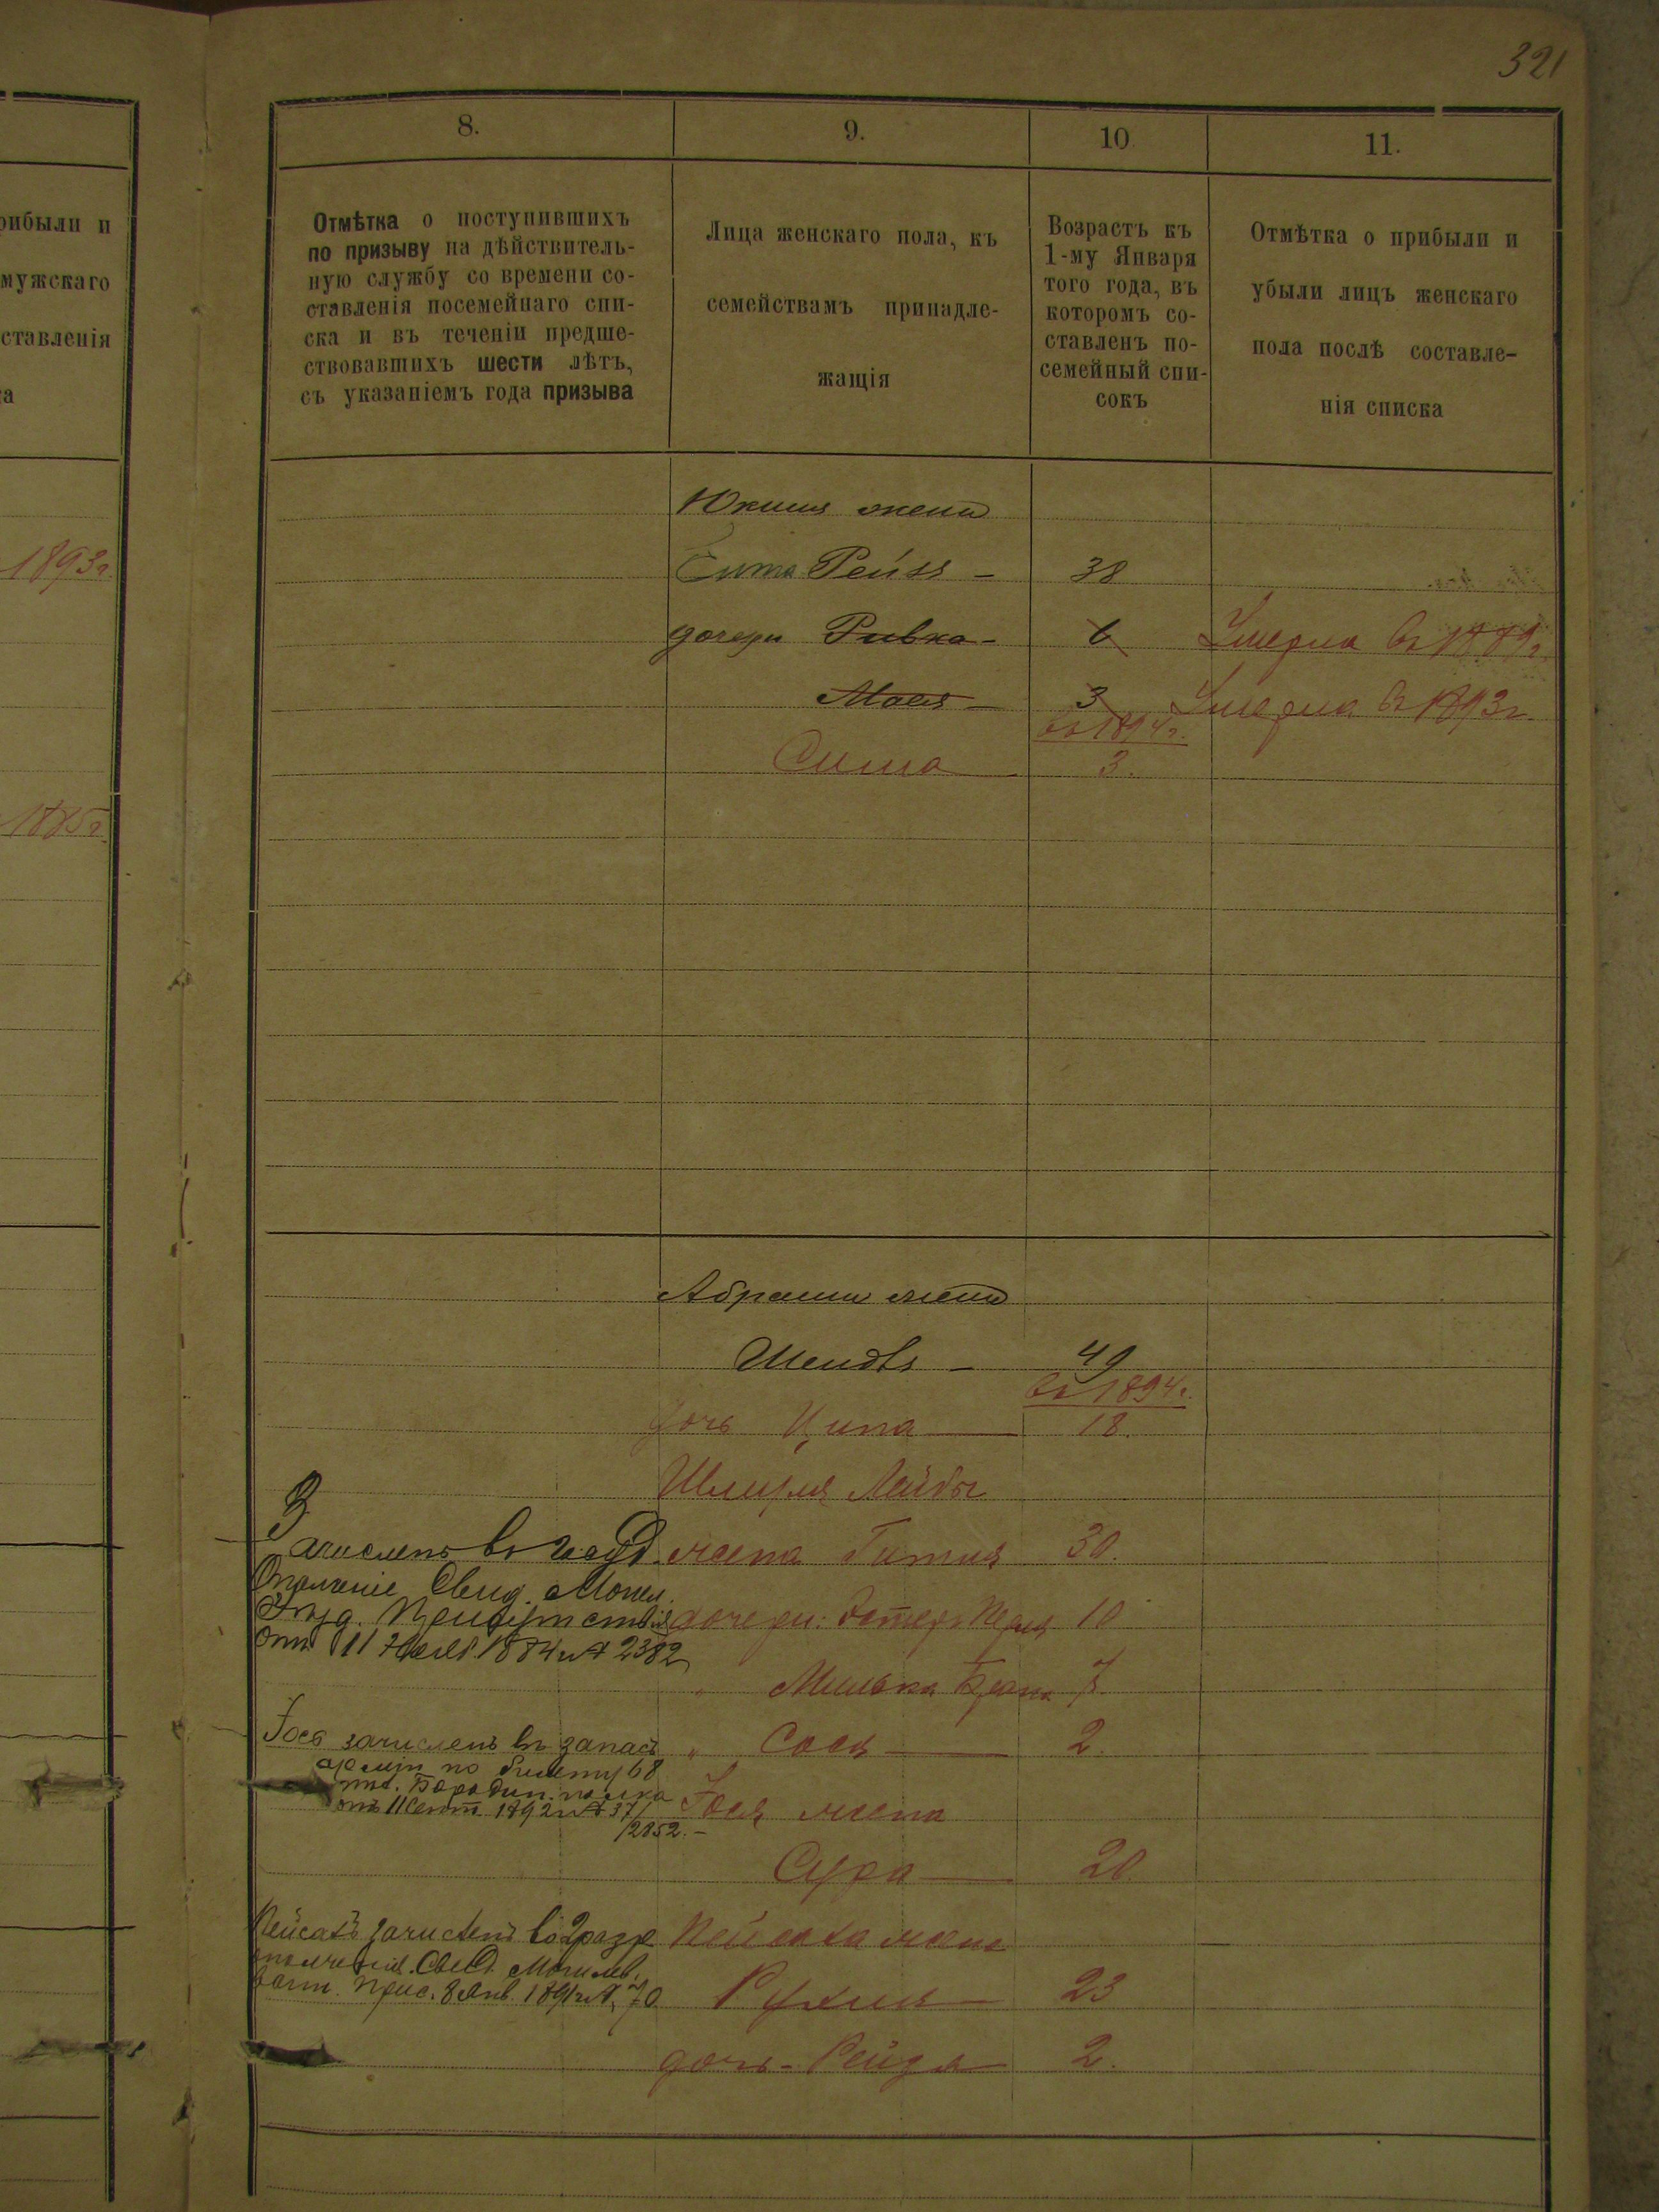 321
рибыли и
мужскаго
ставленія
а
1893г.
1885г.
8.
9.
10
11.
Отмѣтка о поступившихъ
по призыву на дѣйствитель-
ную службу со времени со-
ставленія посемейнаго спи-
ска и въ теченіи предше-
ствовавшихъ шести лѣтъ,
съ указаніемъ года призыва
Лица женскаго пола, къ
семействамъ принадле-
жащія
Возрастъ къ
1-му Января
того года, въ
которомъ со-
ставленъ по-
семейный спи-
сокъ
Отмѣтка о прибыли и
убыли лицъ женскаго
пола послѣ составле-
нія списка
жена
38
дочери Ривка - 6 Умерла въ 1889г.
3 Умерла въ 1893г.
въ 1894г.
Сима 3.
Абрама жена
49
въ 1894г.
дочь Ципа 18.
Шмуля Лейбы
Зачисленъ въ госуд. жена Гитля 30.
Ополченіе Свид. Могил.
Уѣзд. Присутствія дочери: Эстеръ 10
отъ 11 Ноября 1884 г № 2382
" Милька 7.
Іосъ зачисленъ въ запасъ " Сося 2.
арміи по билету 68
пѣх. Бородин. полка
отъ 11 Сент. 1892 г № 37/
12852.-
Іося жена
Сура 20.
Пейсахъ зачисленъ во 2 разр Пейсаха жена
ополченія. Свид. Могилев.
Прис. 8 Янв. 1891 г №, 70
23
дочь - Рейзя 2.